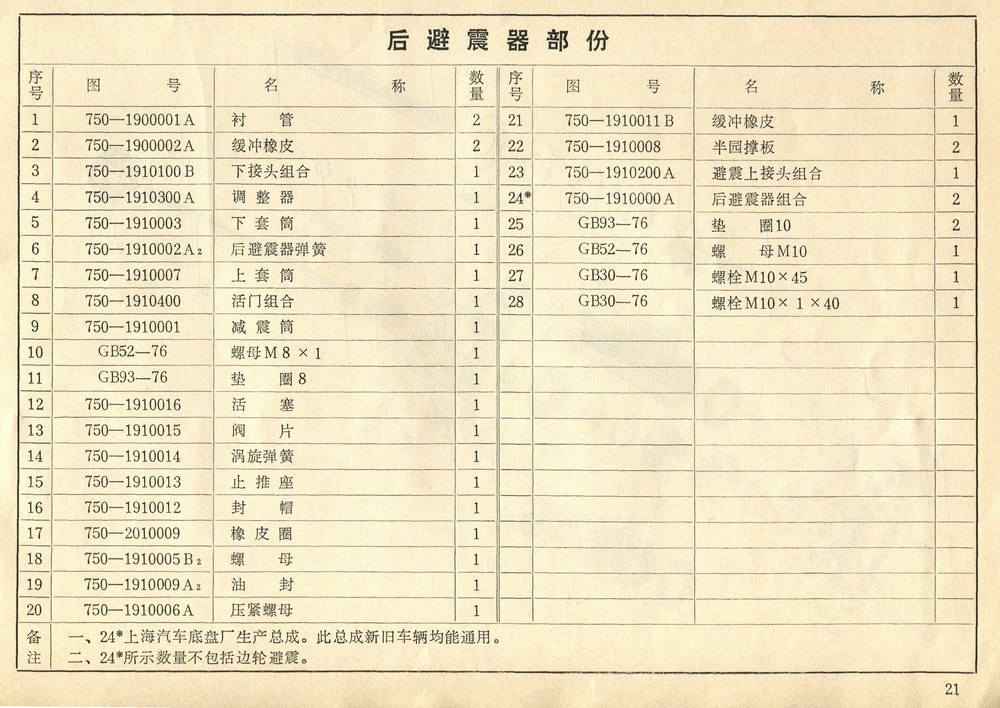 后避震器部份
序号 图号 名称 数量 序号 图号 名称 数量
1 750—1900001A 衬管 2 21 750—1910011B 缓冲橡皮 1
2 750—1900002A 缓冲橡皮 2 22 750—1910008 半园撑板 2
3 750—1910100B 下接头组合 1 23 750—1910200A 避震上接头组合 1
4 750—1910300A 调整器 1 24* 750—1910000A 后避震器组合 2
5 750—1910003 下套筒 1 25 GB93—76 垫圈10 2
6 750—1910002A₂ 后避震器弹簧 1 26 GB52—76 螺母M10 1
7 750—1910007 上套筒 1 27 GB30—76 螺栓M10×45 1
8 750—1910400 活门组合 1 28 GB30—76 螺栓M10×1×40 1
9 750—1910001 减震筒 1
10 GB52—76 螺母M8×1 1
11 GB93—76 垫圈8 1
12 750—1910016 活塞 1
13 750—1910015 阀片 1
14 750—1910014 涡旋弹簧 1
15 750—1910013 止推座 1
16 750—1910012 封帽 1
17 750—2010009 橡皮圈 1
18 750—1910005B₂ 螺母 1
19 750—1910009A₂ 油封 1
20 750—1910006A 压紧螺母 1
备注 一、24*上海汽车底盘厂生产总成。此总成新旧车辆均能通用。
二、24*所示数量不包括边轮避震。
21